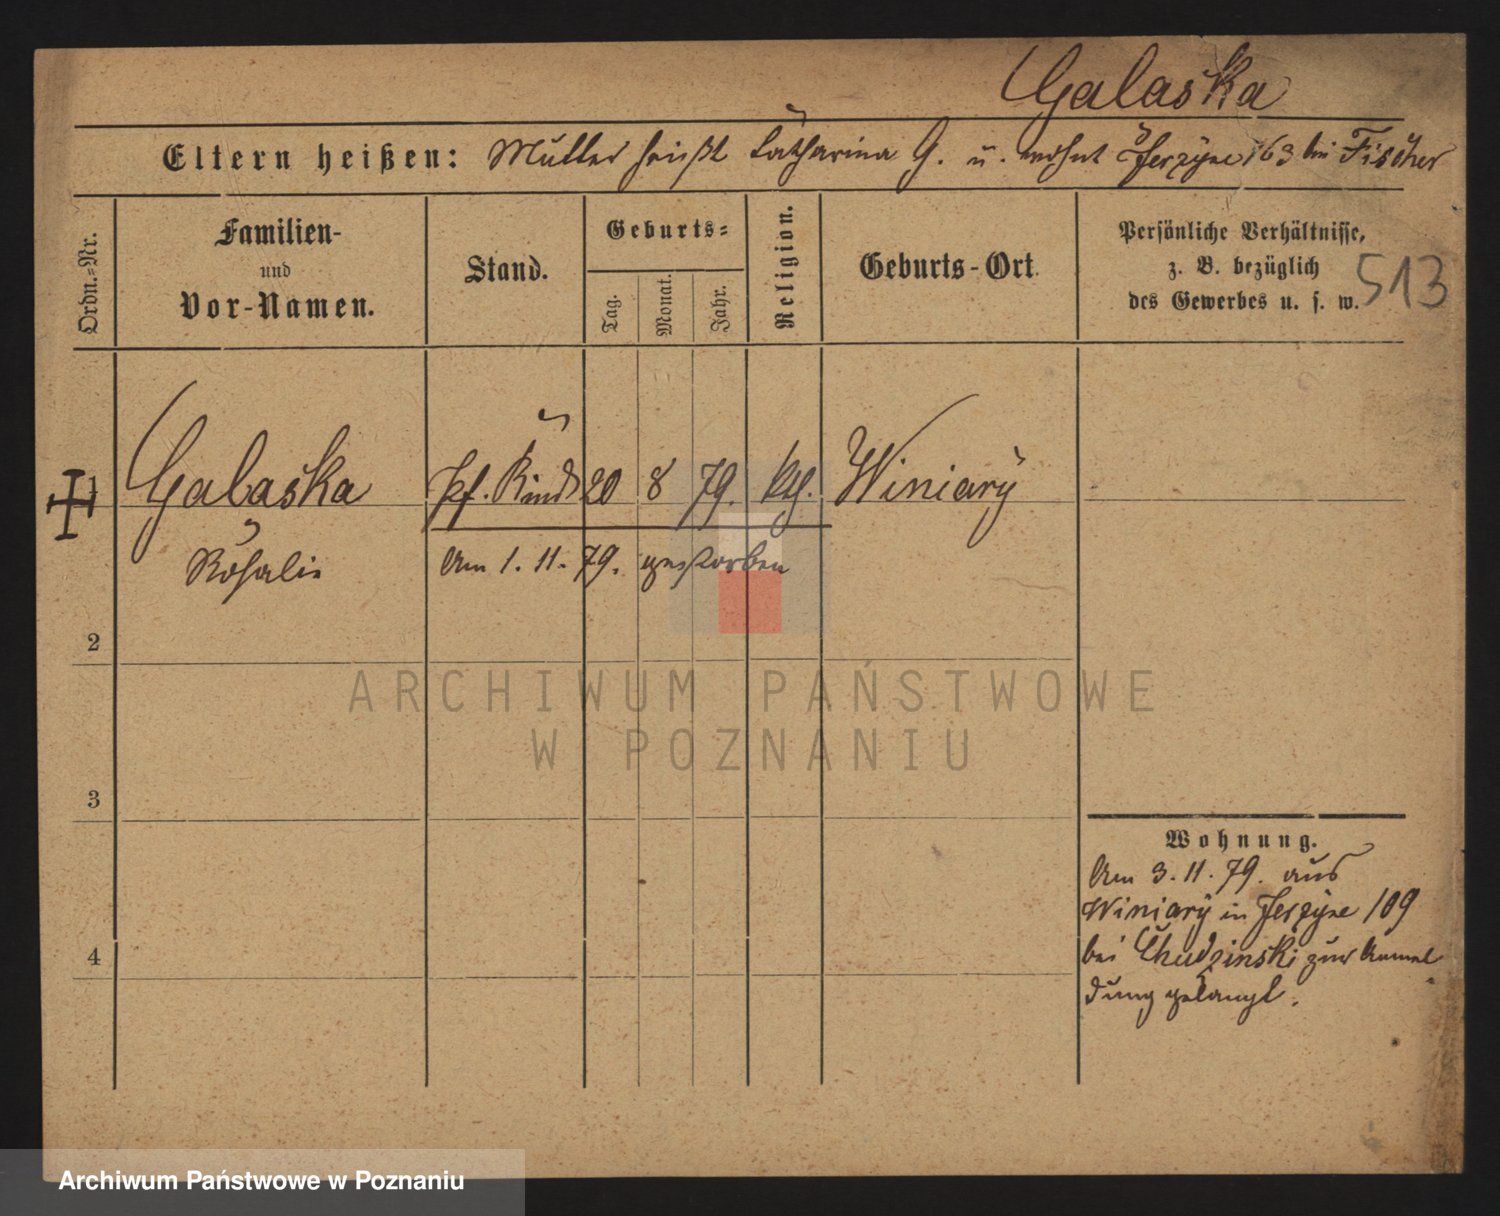 Galaska
Eltern heißen: Mutter heißt Catharina G. u. wohnt Jerzyce 163 bei Fischer
Ordn.-Nr.
Familien-
und
Vor-Namen.
Stand.
Geburts-
Tag.
Monat.
Jahr.
Religion.
Geburts-Ort.
Persönliche Verhältnisse,
z. B. bezüglich
des Gewerbes u. s. w.
513
1
Galaska
Pf. Kind
20
8
79.
kth.
Winiary
Rosalie
Am 1. 11. 79. gestorben
2
3
4
Wohnung.
Am 3. 11. 79. aus
Winiary in Jerzyce 109
bei Chudzinski zur Anmel
dung gelangt.
ARCHIWUM PAŃSTWOWE
W POZNANIU
Archiwum Państwowe w Poznaniu